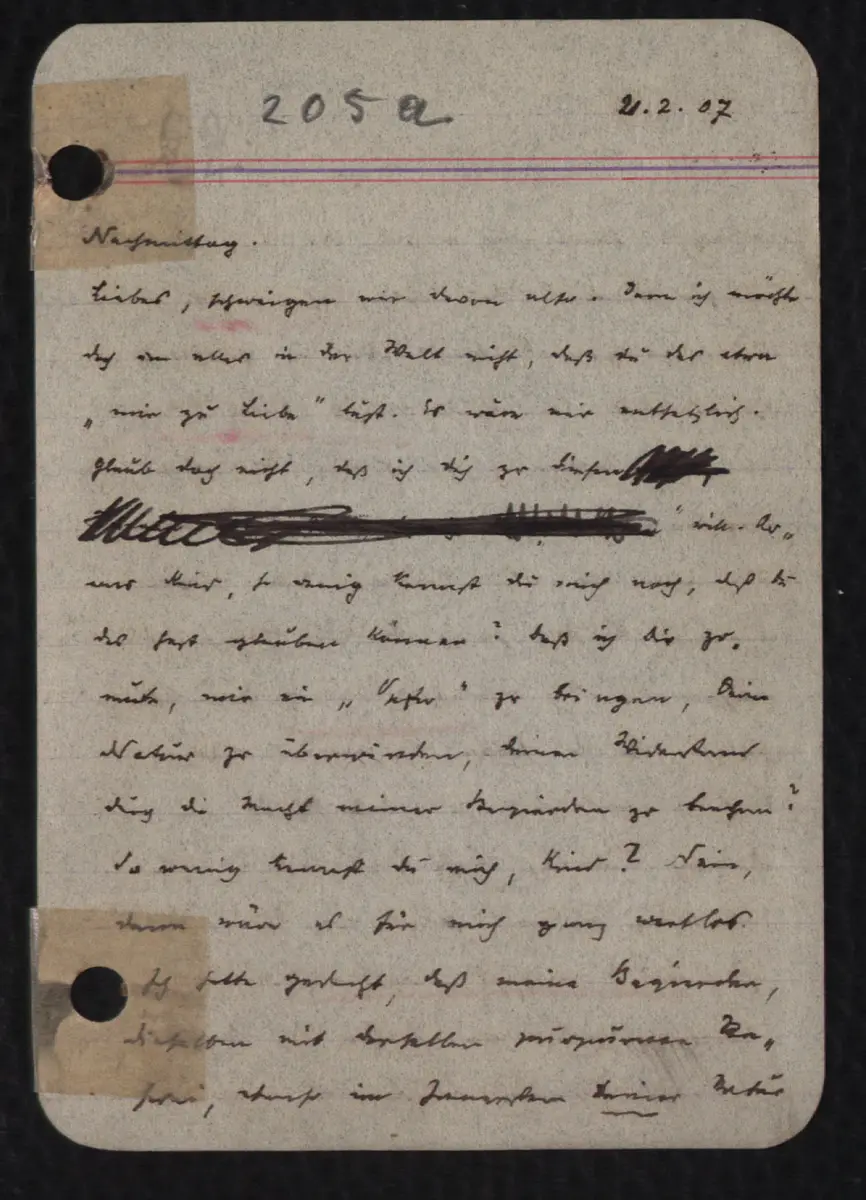 205a
21.2.07
Nachmittag.
Liebes, schweigen wir davon also. Denn ich möchte
doch um alles in der Welt nicht, daß du das etwa
„mir zu Liebe“ tust. Es wäre mir entsetzlich.
Glaub doch nicht, daß ich dich zu diesen
“ will. Wo„
mein Kind, so wenig kennst du mich noch, daß du
das hast glauben können? Daß ich dir zu„
mute, mir ein „Opfer“ zu bringen, Deine
Natur zu überwinden, deinen Widerstand
durch die Macht meiner Begierden zu brechen?
So wenig kennst du mich, Kind? Nein,
dann wär es für mich ganz wertlos.
Ich hatte gedacht, daß meine Begierden,
dieselben mit derselben purpurnen Ra„
serei, ebenso im Innersten Deiner Natur